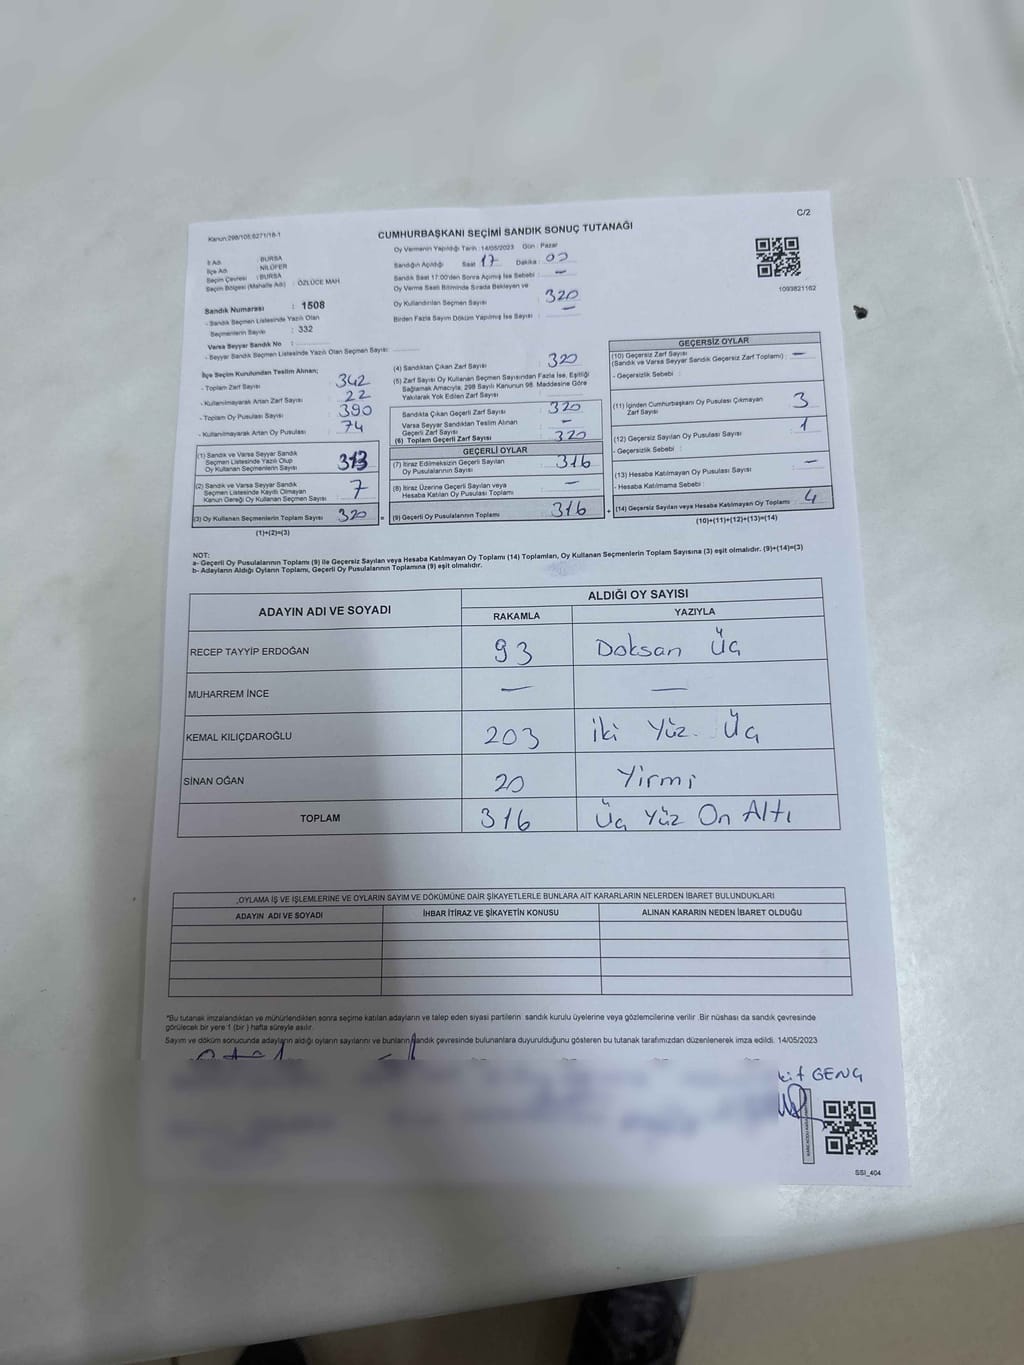 C/2
Kanun:298/105;6271/18-1
CUMHURBAŞKANI SEÇİMİ SANDIK SONUÇ TUTANAĞI
Oy Vermenin Yapıldığı Tarih : 14/05/2023 Gün : Pazar
İl Adı : BURSA
İlçe Adı : NİLÜFER
Seçim Çevresi : BURSA
Seçim Bölgesi (Mahalle Adı) : ÖZLÜCE MAH
Sandığın Açıldığı Saat 17 Dakika : 00
Sandık Saat 17:00'den Sonra Açılmış İse Sebebi : —
Oy Verme Saati Bitiminde Sırada Bekleyen ve
Oy Kullandırılan Seçmen Sayısı : 320
Birden Fazla Sayım Döküm Yapılmış İse Sayısı : —
1093821162
Sandık Numarası : 1508
- Sandık Seçmen Listesinde Yazılı Olan
Seçmenlerin Sayısı : 332
Varsa Seyyar Sandık No :
- Seyyar Sandık Seçmen Listesinde Yazılı Olan Seçmen Sayısı :
İlçe Seçim Kurulundan Teslim Alınan;
- Toplam Zarf Sayısı : 342
- Kullanılmayarak Artan Zarf Sayısı : 22
- Toplam Oy Pusulası Sayısı : 390
- Kullanılmayarak Artan Oy Pusulası : 74
(1) Sandık ve Varsa Seyyar Sandık
Seçmen Listesinde Yazılı Olup
Oy Kullanan Seçmenlerin Sayısı 313
(2) Sandık ve Varsa Seyyar Sandık
Seçmen Listesinde Kayıtlı Olmayan
Kanun Gereği Oy Kullanan Seçmen Sayısı 7
(3) Oy Kullanan Seçmenlerin Toplam Sayısı 320 =
(1)+(2)=(3)
(4) Sandıktan Çıkan Zarf Sayısı : 320
(5) Zarf Sayısı Oy Kullanan Seçmen Sayısından Fazla İse, Eşitliği
Sağlamak Amacıyla; 298 Sayılı Kanunun 98. Maddesine Göre
Yakılarak Yok Edilen Zarf Sayısı :
Sandıkta Çıkan Geçerli Zarf Sayısı : 320
Varsa Seyyar Sandıktan Teslim Alınan
Geçerli Zarf Sayısı : —
(6) Toplam Geçerli Zarf Sayısı : 320
GEÇERLİ OYLAR
(7) İtiraz Edilmeksizin Geçerli Sayılan
Oy Pusulalarının Sayısı : 316
(8) İtiraz Üzerine Geçerli Sayılan veya
Hesaba Katılan Oy Pusulası Toplamı : —
(9) Geçerli Oy Pusulalarının Toplamı : 316 +
GEÇERSİZ OYLAR
(10) Geçersiz Zarf Sayısı
(Sandık ve Varsa Seyyar Sandık Geçersiz Zarf Toplamı) : —
- Geçersizlik Sebebi :
(11) İçinden Cumhurbaşkanı Oy Pusulası Çıkmayan
Zarf Sayısı : 3
(12) Geçersiz Sayılan Oy Pusulası Sayısı : 1
- Geçersizlik Sebebi :
(13) Hesaba Katılmayan Oy Pusulası Sayısı : —
- Hesaba Katılmama Sebebi :
(14) Geçersiz Sayılan veya Hesaba Katılmayan Oy Toplamı : 4
(10)+(11)+(12)+(13)=(14)
NOT:
a- Geçerli Oy Pusulalarının Toplamı (9) ile Geçersiz Sayılan veya Hesaba Katılmayan Oy Toplamı (14) Toplamları, Oy Kullanan Seçmenlerin Toplam Sayısına (3) eşit olmalıdır. (9)+(14)=(3)
b- Adayların Aldığı Oyların Toplamı, Geçerli Oy Pusulalarının Toplamına (9) eşit olmalıdır.
ADAYIN ADI VE SOYADI
ALDIĞI OY SAYISI
RAKAMLA YAZIYLA
RECEP TAYYİP ERDOĞAN 93 Doksan Üç
MUHARREM İNCE — —
KEMAL KILIÇDAROĞLU 203 İki Yüz. Üç
SİNAN OĞAN 20 Yirmi
TOPLAM 316 Üç Yüz On Altı
OYLAMA İŞ VE İŞLEMLERİNE VE OYLARIN SAYIM VE DÖKÜMÜNE DAİR ŞİKAYETLERLE BUNLARA AİT KARARLARIN NELERDEN İBARET BULUNDUKLARI
ADAYIN ADI VE SOYADI İHBAR İTİRAZ VE ŞİKAYETİN KONUSU ALINAN KARARIN NEDEN İBARET OLDUĞU
*Bu tutanak imzalandıktan ve mühürlendikten sonra seçime katılan adayların ve talep eden siyasi partilerin sandık kurulu üyelerine veya gözlemcilerine verilir. Bir nüshası da sandık çevresinde
görülecek bir yere 1 (bir) hafta süreyle asılır.
Sayım ve döküm sonucunda adayların aldığı oyların sayılarını ve bunların sandık çevresinde bulunanlara duyurulduğunu gösteren bu tutanak tarafımızdan düzenlenerek imza edildi. 14/05/2023
GENÇ
SSI_404